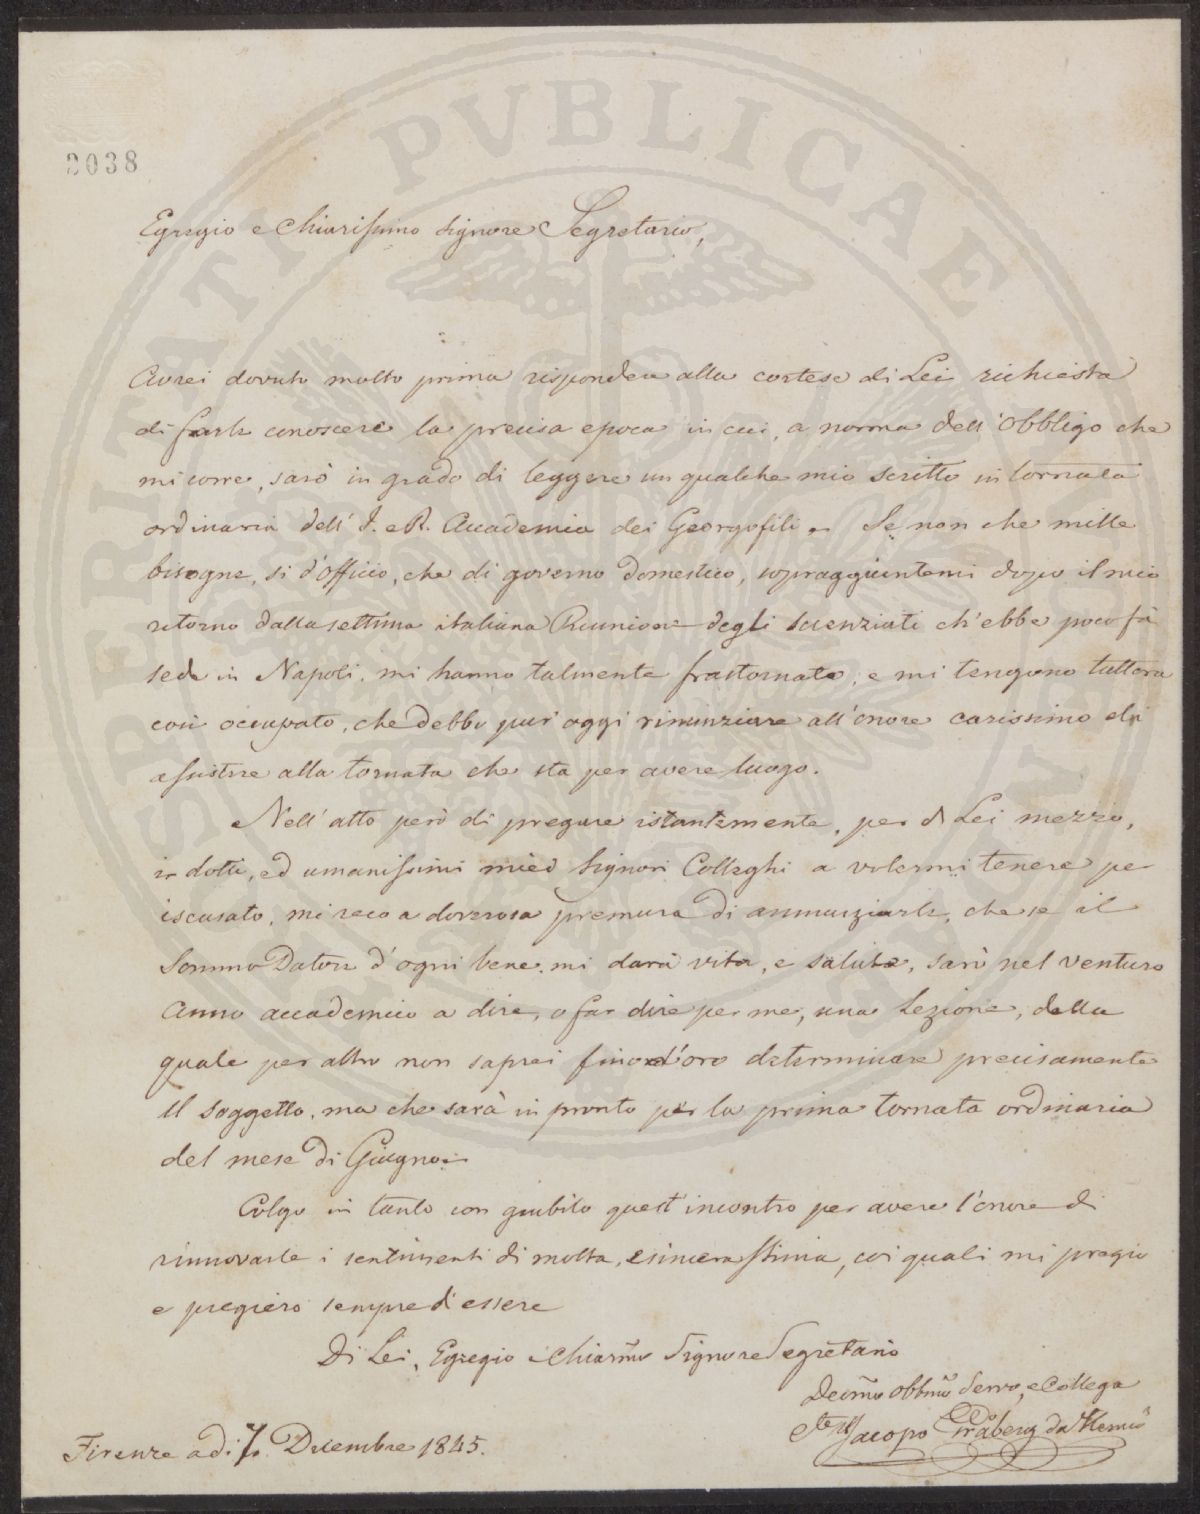 2038
Egregio e Chiarissimo Signore Segretario,
Avrei dovuto molto prima rispondere alla cortese di Lei richiesta
di farle conoscere la precisa epoca in cui, a norma dell'obbligo che
mi corre, sarò in grado di leggere un qualche mio scritto in tornata
ordinaria dell'I. e R. Accademia dei Georgofili. Se non che mille
bisogne, sì d'officio, che di governo domestico, sopraggiuntemi dopo il mio
ritorno dalla settima italiana Riunione degli scienziati ch'ebbe poco fà
sede in Napoli, mi hanno talmente frastornato, e mi tengono tuttora
così occupato, che debbo pur oggi rinunziare all'onore carissimo di
assistere alla tornata che sta per avere luogo.
Nell'atto però di pregare istantemente, per di Lei mezzo,
i dotti, ed umanissimi miei Signori Colleghi a volermi tenere per
iscusato, mi reco a doverosa premura di annunziarle, che se il
Sommo Datore d'ogni bene mi darà vita, e salute, sarò nel venturo
Anno accademico a dire, o far dire per me, una Lezione, della
quale per altro non saprei fino d'ora determinare precisamente
il soggetto, ma che sarà in pronto per la prima tornata ordinaria
del mese di Giugno.
Colgo in tanto con giubilo quest'incontro per avere l'onore di
rinnovarle i sentimenti di molta, e sincera stima, coi quali mi pregio
e pregierò sempre di essere
Di Lei, Egregio e Chiarmo Signore Segretario
Devmo Obbmo Servo, e Collega
Jacopo Gråberg da Hemsö
Firenze a dì 7. Dicembre 1845.
SPERITATI PUBLICAE